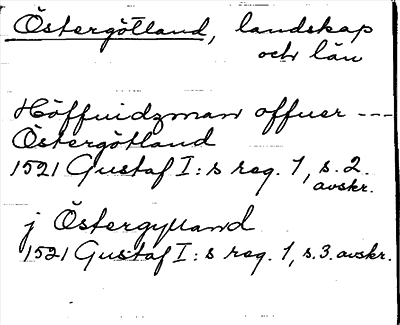 Östergötland, landskap
och län
Höffuidzman offuer ---
Östergötland
1521 Gustaf I:s reg. 1, s. 2.
avskr.
j Östergylland
1521 Gustaf I:s reg. 1, s. 3. avskr.